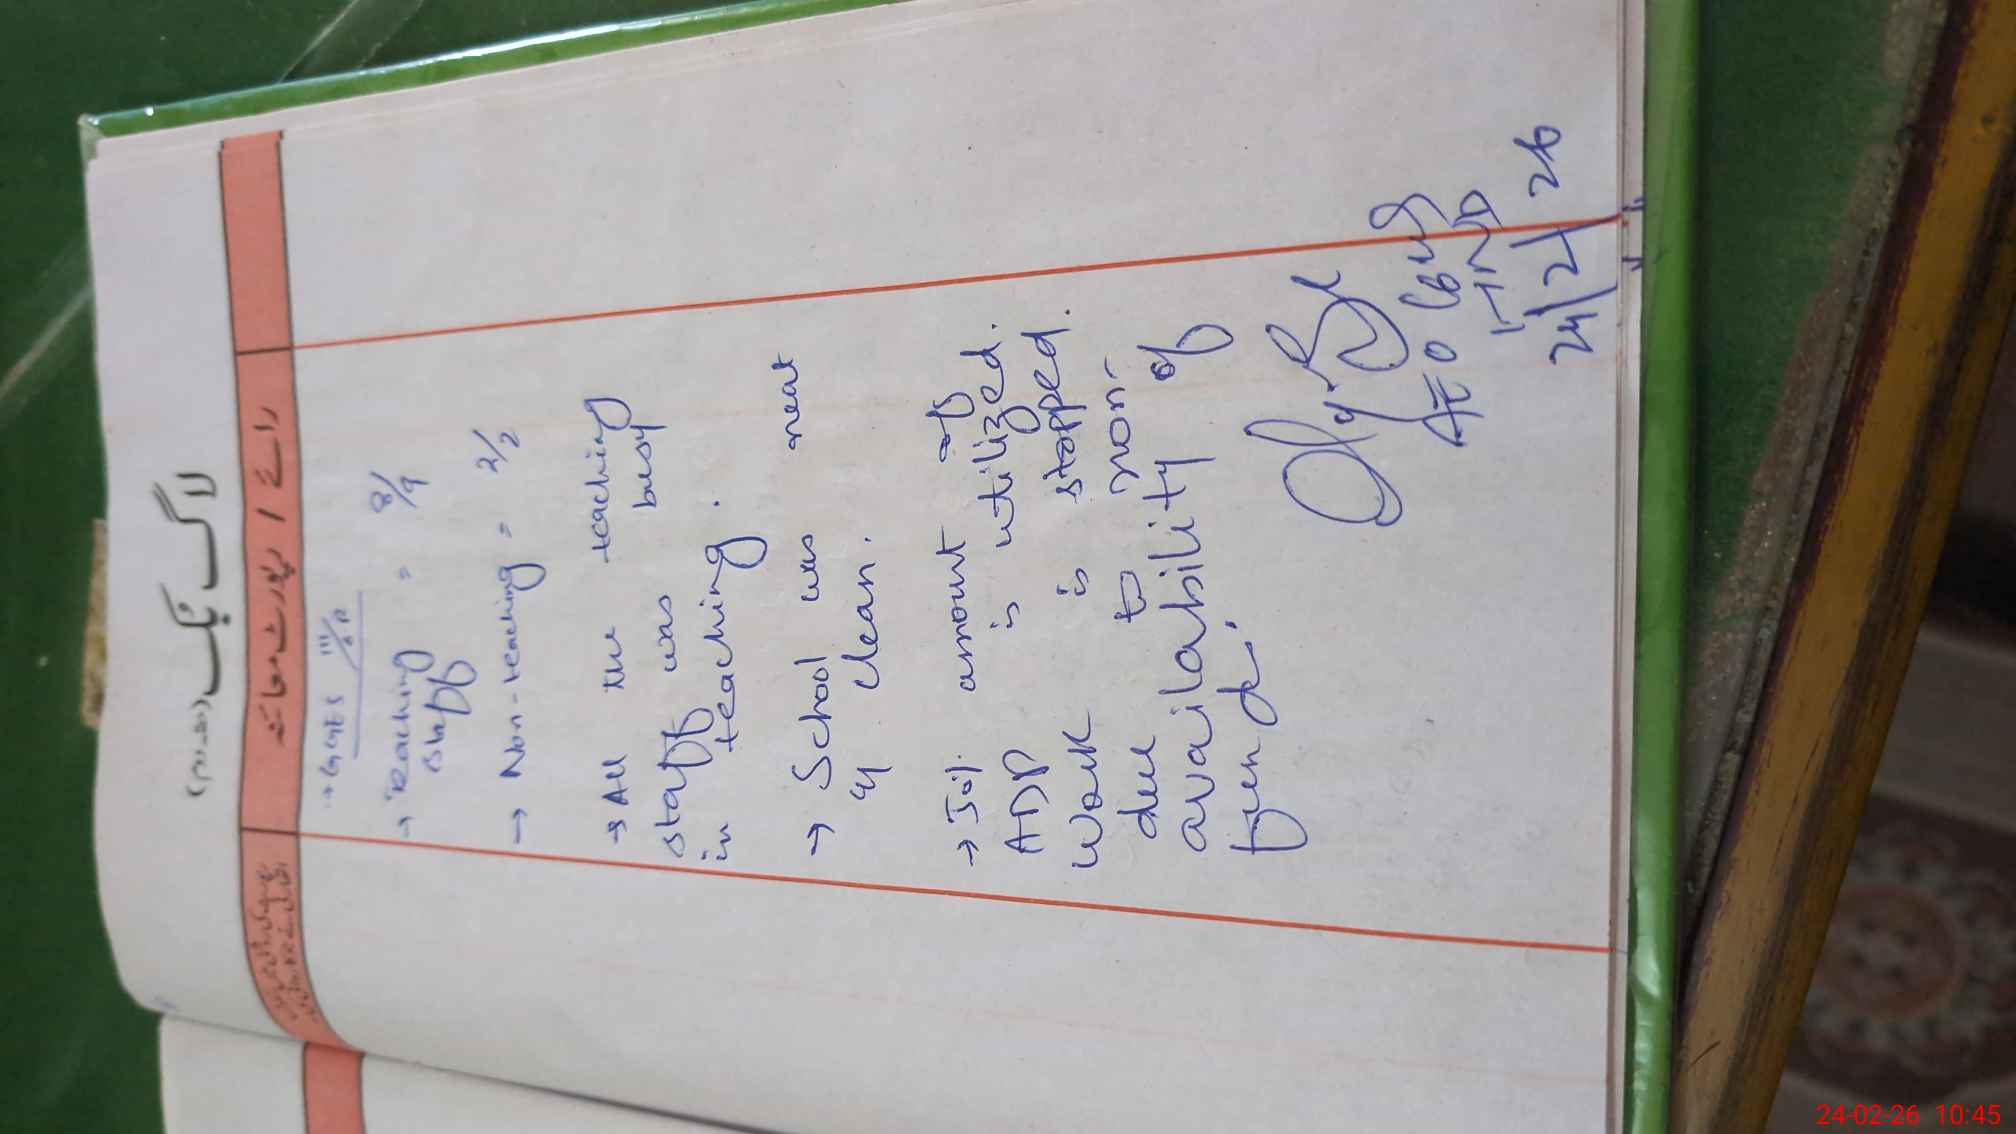 لاگ بُک (حصہ دوم)
رائے / رپورٹ معائنہ
→ GGES
→ Teaching = 8/9
staff
→ Non-teaching = 2/2
→ All the teaching
staff was busy
in teaching.
→ School was neat
& clean.
amount of
ADP is utilized.
Work is stopped.
due to non-
availability of
funds.
AEO
24/2/26
24-02-26 10:45